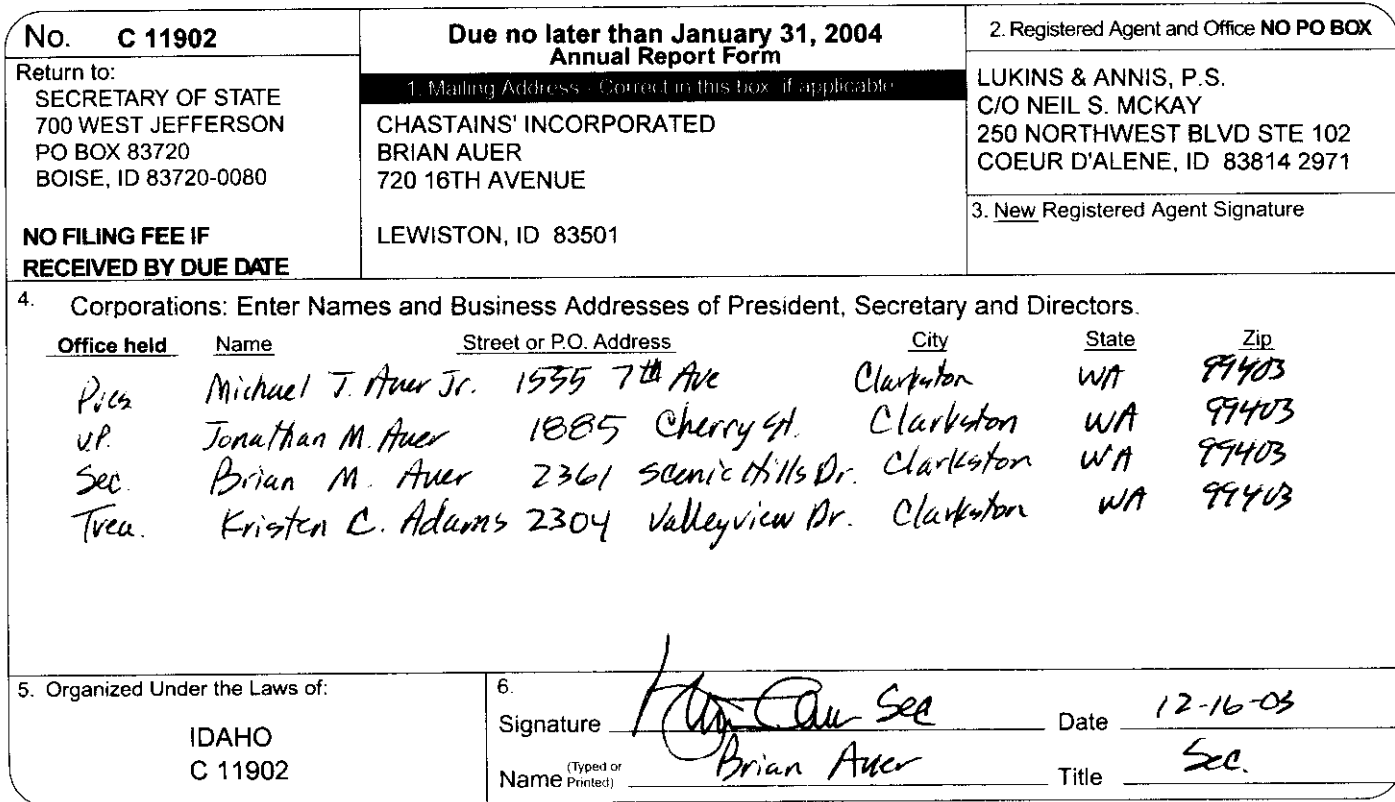 No. C 11902
Return to:
SECRETARY OF STATE
700 WEST JEFFERSON
PO BOX 83720
BOISE, ID 83720-0080
NO FILING FEE IF
RECEIVED BY DUE DATE
Due no later than January 31, 2004
Annual Report Form
1. Mailing Address - Correct in this box if applicable
CHASTAINS' INCORPORATED
BRIAN AUER
720 16TH AVENUE
LEWISTON, ID 83501
2. Registered Agent and Office NO PO BOX
LUKINS & ANNIS, P.S.
C/O NEIL S. MCKAY
250 NORTHWEST BLVD STE 102
COEUR D'ALENE, ID 83814 2971
3. New Registered Agent Signature
4. Corporations: Enter Names and Business Addresses of President, Secretary and Directors.
Office held Name Street or P.O. Address City State Zip
Pres Michael J. Auer Jr. 1555 7th Ave Clarkston WA 99403
V.P. Jonathan M. Auer 1885 Cherry St. Clarkston WA 99403
Sec. Brian M. Auer 2361 Scenic Hills Dr. Clarkston WA 99403
Trea. Kristen C. Adams 2304 Valleyview Dr. Clarkston WA 99403
5. Organized Under the Laws of:
IDAHO
C 11902
6.
Signature Sec Date 12-16-03
Name (Typed or Printed) Brian Auer Title Sec.